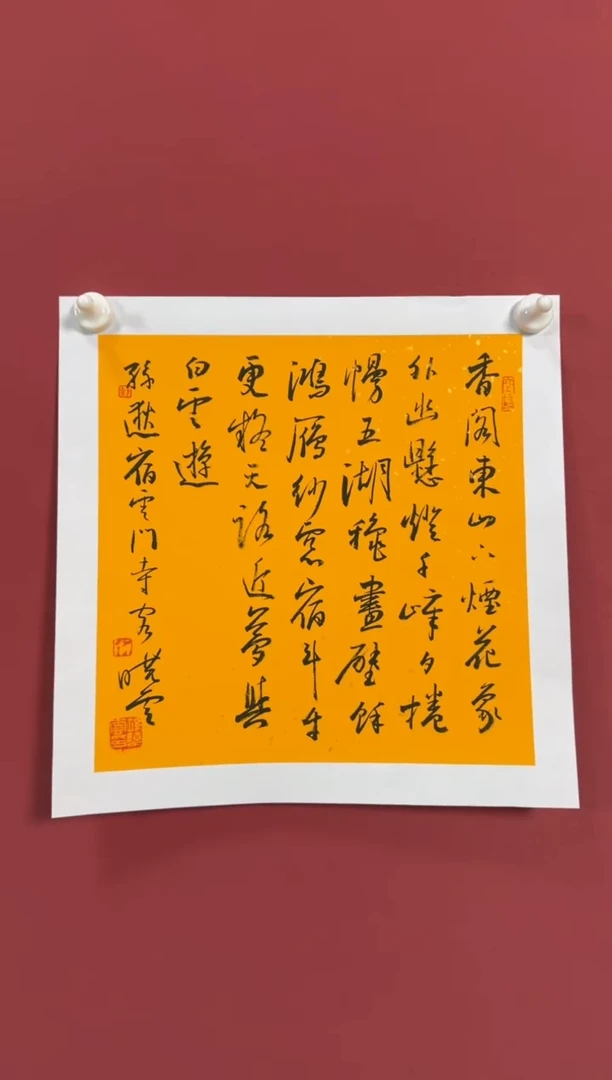 香閣東山下煙花象
外幽懸燈千嶂夕捲
幔五湖穐畫壁餘
鴻鴈紗窓宿斗牛
更疑天路近夢與
白雲遊
孫逖宿雲門寺 曉雲